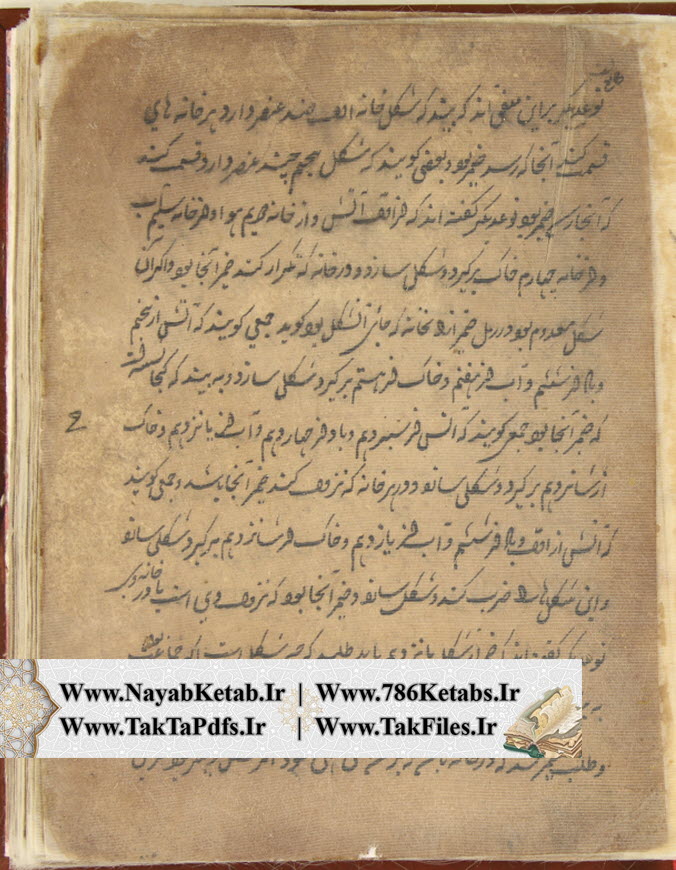 نوعدیکر براین متفق اند که بینند که شکل خانه اول چند عنصر دارد بهر خانه های
قسمت کنند آنجا که رسد ضمیر بود و بعضی کویند که شکل پنجم چند عنصر دارد قسمت کنند
که آنجا رسد ضمیر بود نوعدیکر کفته اند که از اول آتش و از خانه دویم هوا و از خانه سیم آب
و از خانه چهارم خاک برکیرد و شکلی سازد و در خانه که تکرار کند ضمیر آنجا بود و اکر آن
شکل معدوم بود در رمل ضمیر از آنخانه که جای آنشکل بود کوید جمعی کویند که آتش از پنجم
و باد از ششم و آب از هفتم و خاک از هشتم برکیرد شکلی سازد و به بیند که کجا
که ضمیر آنجا بود جمعی کویند که آتش از سیزدهم و باد از چهاردهم و آب از پانزدهم و خاک
از شانزدهم برکیرد و شکلی سازد و در هر خانه که نزول کند ضمیر آنجا باشد و جمعی کویند
که آتش از اول و باد از ششم و آب از یازدهم و خاک از شانزدهم برکیرد و شکلی سازد
و این شکل ها را ضرب کند و شکلی سازد و ضمیر آنجا بود که نزول وی است یا در خانه وی
نوعدیکر کفته اند که ضمیر از شکل پانزدهم باید طلبید که چه شکل است اکر
Www.NayabKetab.Ir | Www.786Ketabs.Ir
Www.TakTaPdfs.Ir | Www.TakFiles.Ir